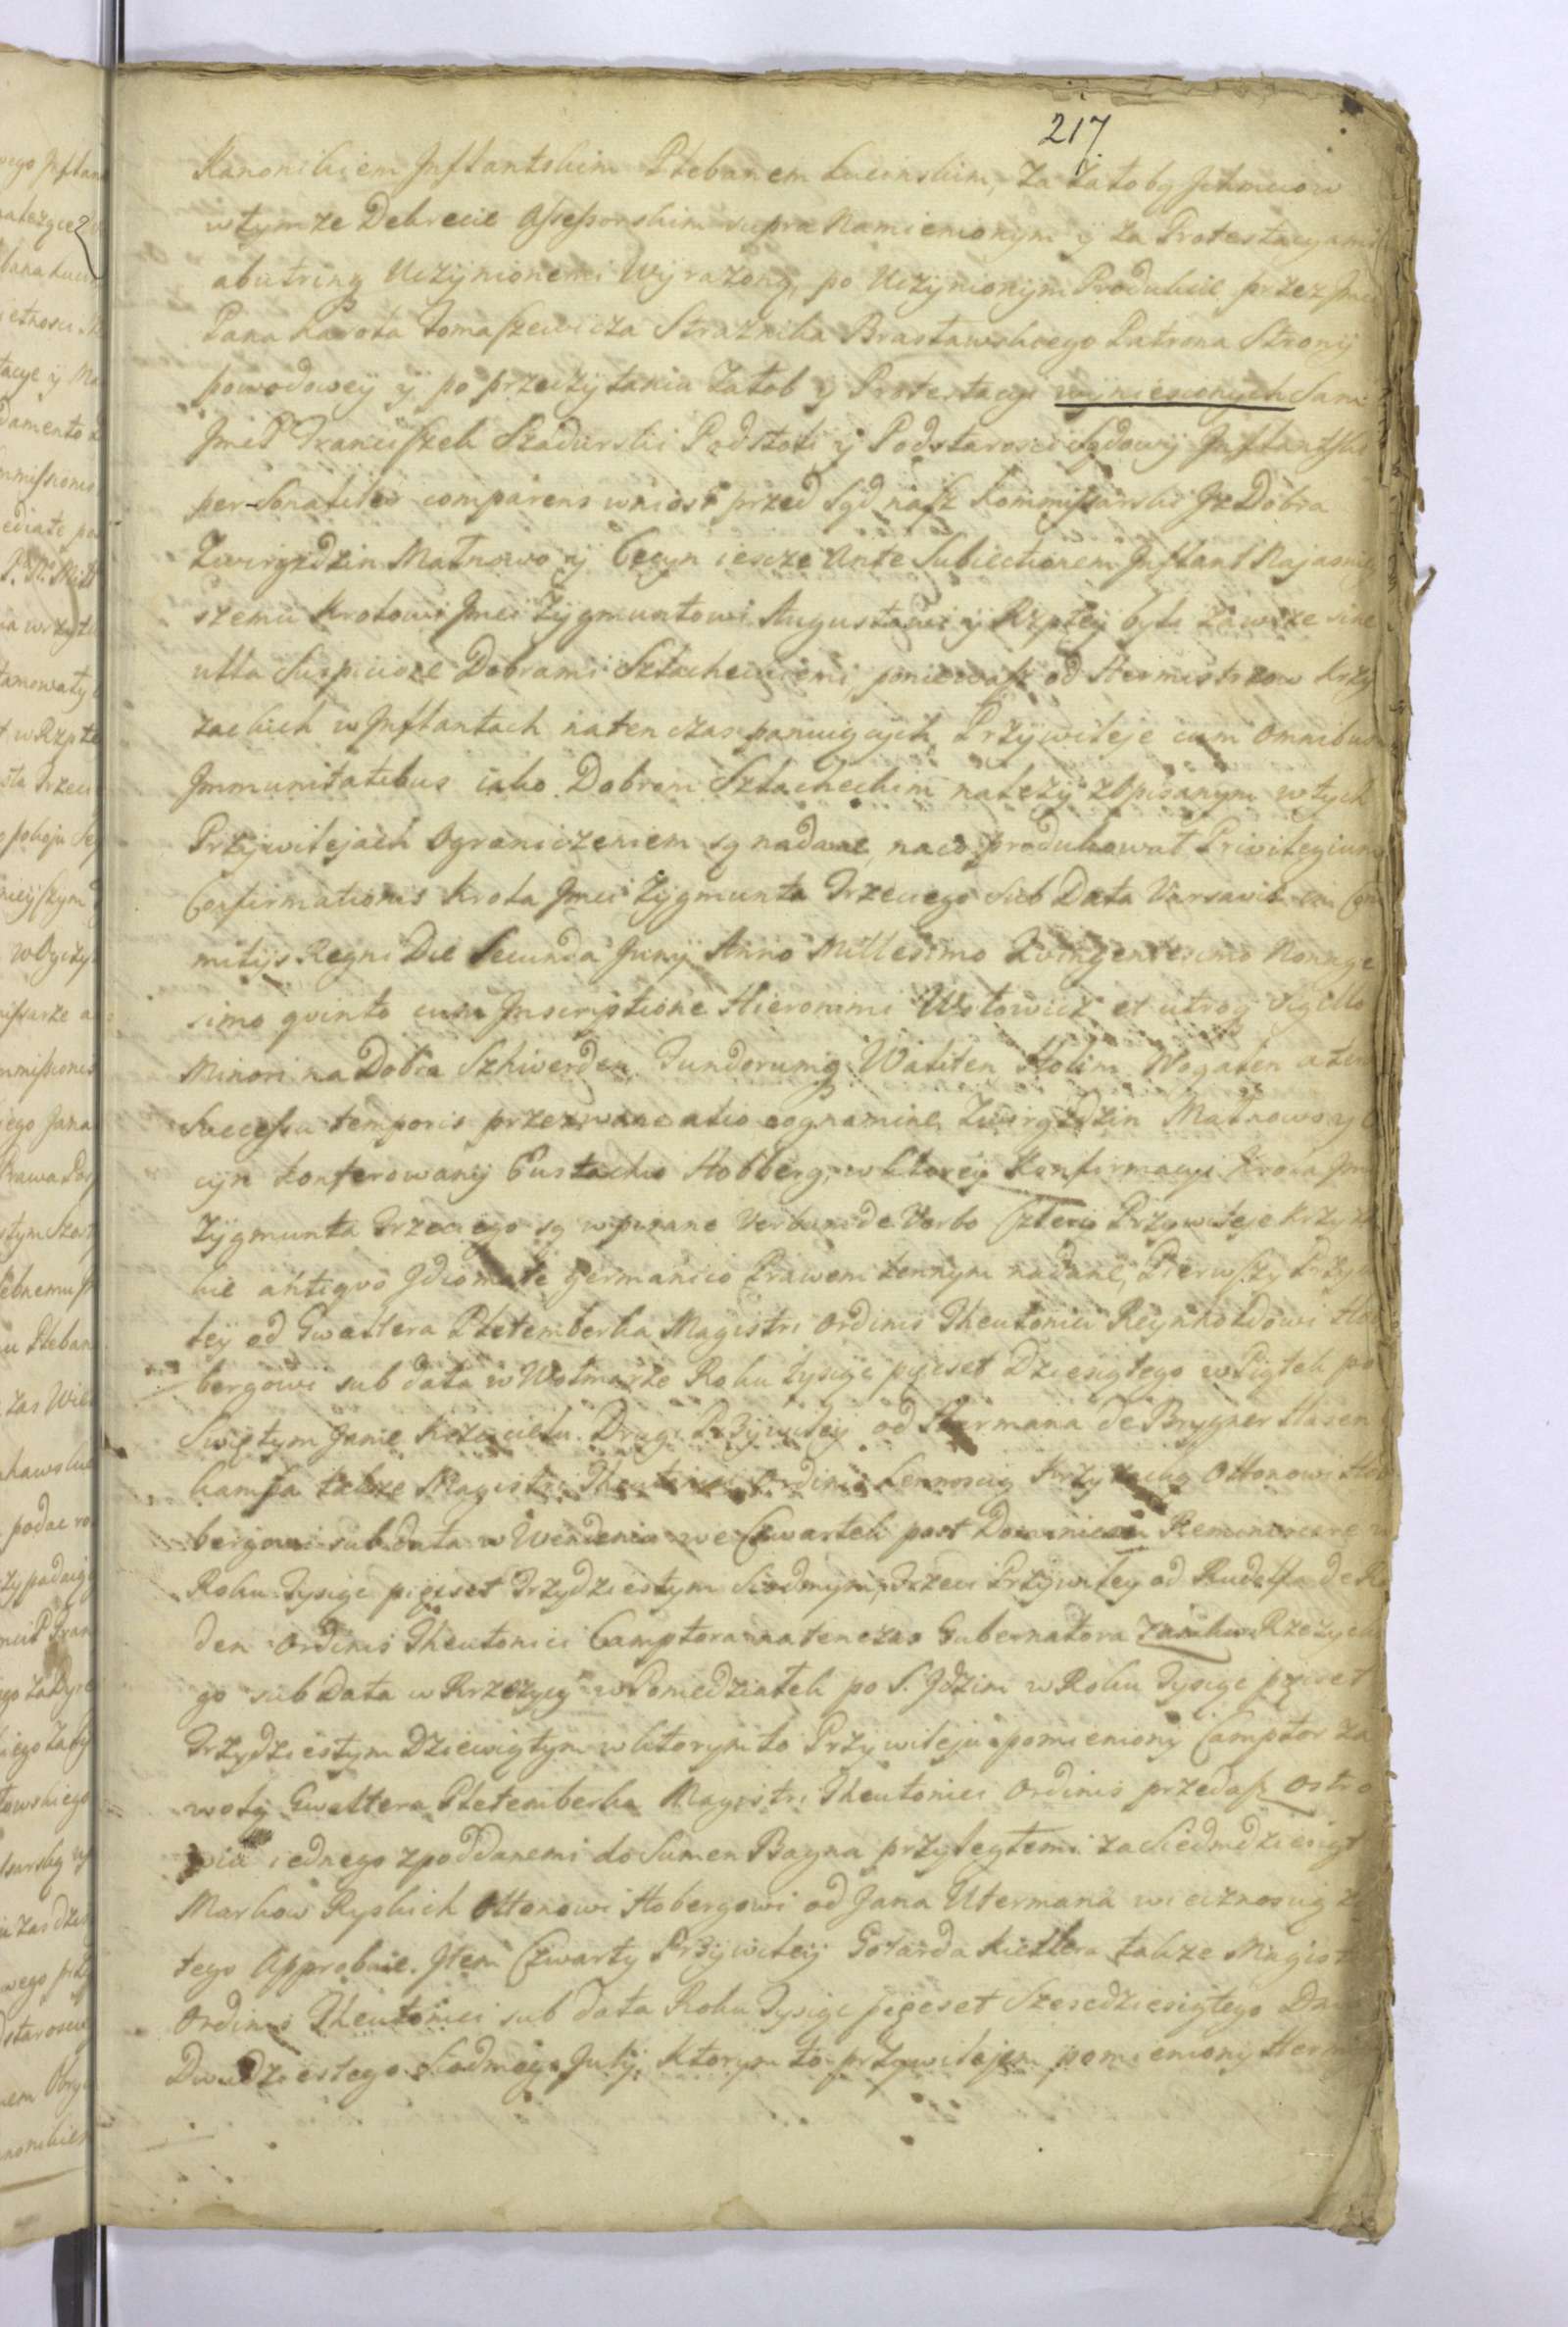 217
Kanonikiem Jnflantskim Plebanem Lucinskim, za żałobą Jchmciow
w tymże Dekrecie Assessorskim supra namienionym y za Protestacyami
ab utrinq Uczynionemi Wyrazoną, po Uczynionym Produkcie przez Jmci
Pana Karola Tomaszewicza Straznika Brasławskiego Patrona Strony
powodowey y po przeczytaniu Załob y Protestacyi wyniesionych Sam
JmcP Franciszek Szadurski Podstoli y Podstarosci Sądowy Jnflantski
personaliter comparens wniosł przed Sąd nasz Kommissarski Jz Dobra
Zwirgzdzin Malnowo y Cecyn iescze Ante Subiectionem Jnflant Najasniey
szemu Krolowi Jmci Zygmuntowi Augustowi y Rzptey byli zawsze sine
ulla Suspicione Dobrami Szlacheckiemi, poniewasz od Hermistrzow Krzy
zackich w Jnflantach natenczas panuiących Przywileje cum Omnibus
Jmmunitatibus iako Dobrom Szlacheckim należy z Opisanym w tych
Przywilejach Ograniczeniem są nadane, na co produkował Privilegium
Confirmationis Krola Jmci Zygmunta Trzeciego Sub Data Varsaviæ in Com
mitijs Regni Die Secunda Junij Anno Millesimo Quingentesimo Nonage
simo quinto cum Jnscriptione Hieronimi Wołowicz et utroq Sigillo
Minori na Dobra Szkwerden Fundorumq Waliten Holim Nogalen a ten
Successu temporis przezwane alio cognomine Zwirgzdzin Malnowo y C
cyn konferowany Eustachio Hobberg, w ktorey Konfirmacyi Krola Jmci
Zygmunta Trzeciego są wpisane Verbum de Verbo Cztery Przywileje Krzyżac
kie antiquo Jdiomate Germanico Prawem Lennym nadane, Pierwszy Przywi
ley od Gwaltera Pletemberka Magistri Ordinis Theutonici Reynholdowi Hob
bergowi sub data w Wolmarze Roku tysiąc pięcset Dziesiątego w Piątek po
Swiętym Janie Krzcicielu. Drugi Przywiley od Hermana de Brygner Hasen
kampfa także Magistri Theutonici Ordinis Lennoscią Krzyzacką Ottonowi Hob
bergowi sub data w Wendenie we Czwartek post Dominicam Reminiscere w
Roku Tysiąc pięcset Trzydziestym Siodmym, Trzeci Przywiley od Rudolfa de Ra
den Ordinis Theutonici Camptora natenczas Gubernatora Zamku Rzezyck
go sub Data w Rzezycy w Poniedziałek po S. Jdzim w Roku Tysiąc pęcset
Trzydziestym Dziewiątym w ktorym to Przywileju pomieniony Camptor za
wolą Gwaltera Pletemberka Magistri Theutonici Ordinis przedasz Ostro
wia iednego z poddanemi do Sumen Bagna przyległemi za Siedmdziesiąt
Markow Ryskich Ottonowi Hobergowi od Jana Utermana wiecznoscią
tego Approbuie. Jtem Czwarty Przywiley Gotarda Kietlera także Magistri
Ordinis Theutonici sub data Roku Tysiąc pięcset Szescdziesiątego Dnia
Dwudziestego Siodmego Julij, Ktorym to przywilejem pomieniony Herm